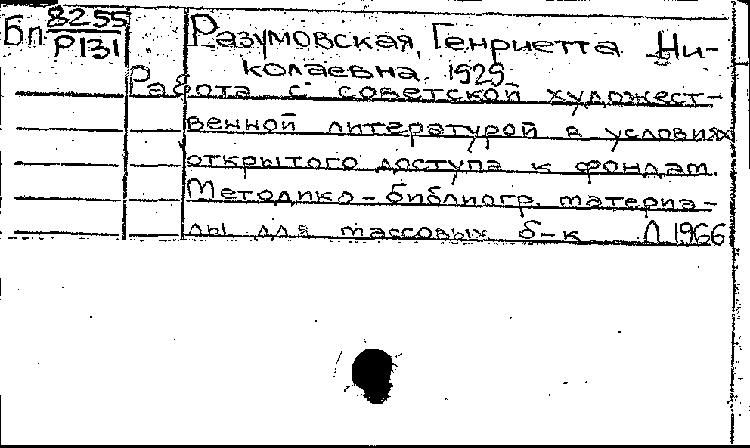 Бп 8255
Р131
Разумовская, Генриетта Ни-
колаевна. 1929-
Работа с советской художест-
венной литературой в условиях
открытого доступа к фондам.
Методико-библиогр. материа-
лы для массовых б-к Л 1966